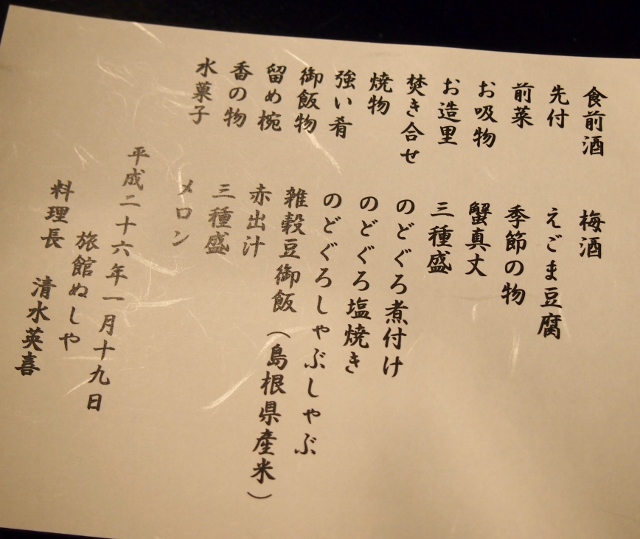 食前酒　梅酒
先付　えごま豆腐
前菜　季節の物
お吸物　蟹真丈
お造里　三種盛
焚き合せ　のどぐろ煮付け
焼物　のどぐろ塩焼き
強い肴　のどぐろしゃぶしゃぶ
御飯物　雑穀豆御飯（島根県産米）
留め椀　赤出汁
香の物　三種盛
水菓子　メロン
平成二十六年一月十九日
旅館ぬしや
料理長　清水英喜